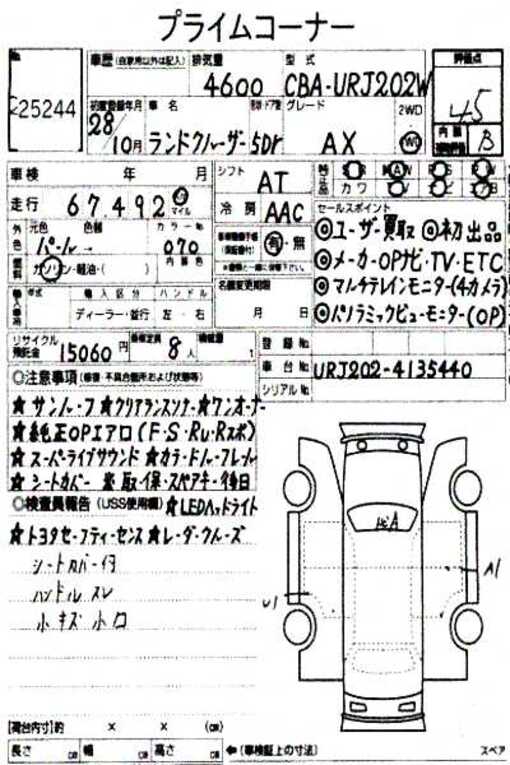 プライムコーナー
25244
車歴 (自家用以外は記入) 排気量 型式 評価点
4600 CBA-URJ202W 4.5
初度登録年月 車名 グレード 2WD
28/10月 ランドクルーザー 5Dr AX 4WD
内装 B
車検 年 月 シフト AT
カワ TV ナビ エアB
走行 67,492 マイル 冷房 AAC
セールスポイント
◎ユーザー買取 ◎初出品
外色 元色 色替 カラーNo
パール 070
有・無
燃料 ガソリン・軽油・( ) 内装色
◎メーカーOPナビ・TV・ETC
◎マルチテレインモニター(4カメラ)
◎パノラミックビューモニター(OP)
輸入車 年式 輸入区分 ハンドル 名義変更期限
ディーラー・並行 左・右 月 日
リサイクル預託金 15060円 乗車定員 8人 積載量 t
登録No.
車台No. URJ202-4135440
シリアルNo.
◎注意事項 (修復・不具合箇所および状態等)
★サンルーフ★クリアランスソナー★ワンオーナー
★純正OPエアロ(F・S・Ru・Rスポ)
★スーパーライブサウンド★カラードルーフレール
★シートカバー 塗 取・保・スペアキー・後日
◎検査員報告 (USS使用欄) ★LEDヘッドライト
★トヨタセーフティーセンス★レーダークルーズ
シートカバー付
ハンドル スレ
小キズ 小凹
A1
U1
【荷台内寸】約 × × (cm)
長さ cm 幅 cm 高さ cm ←(車検証上の寸法) スペア